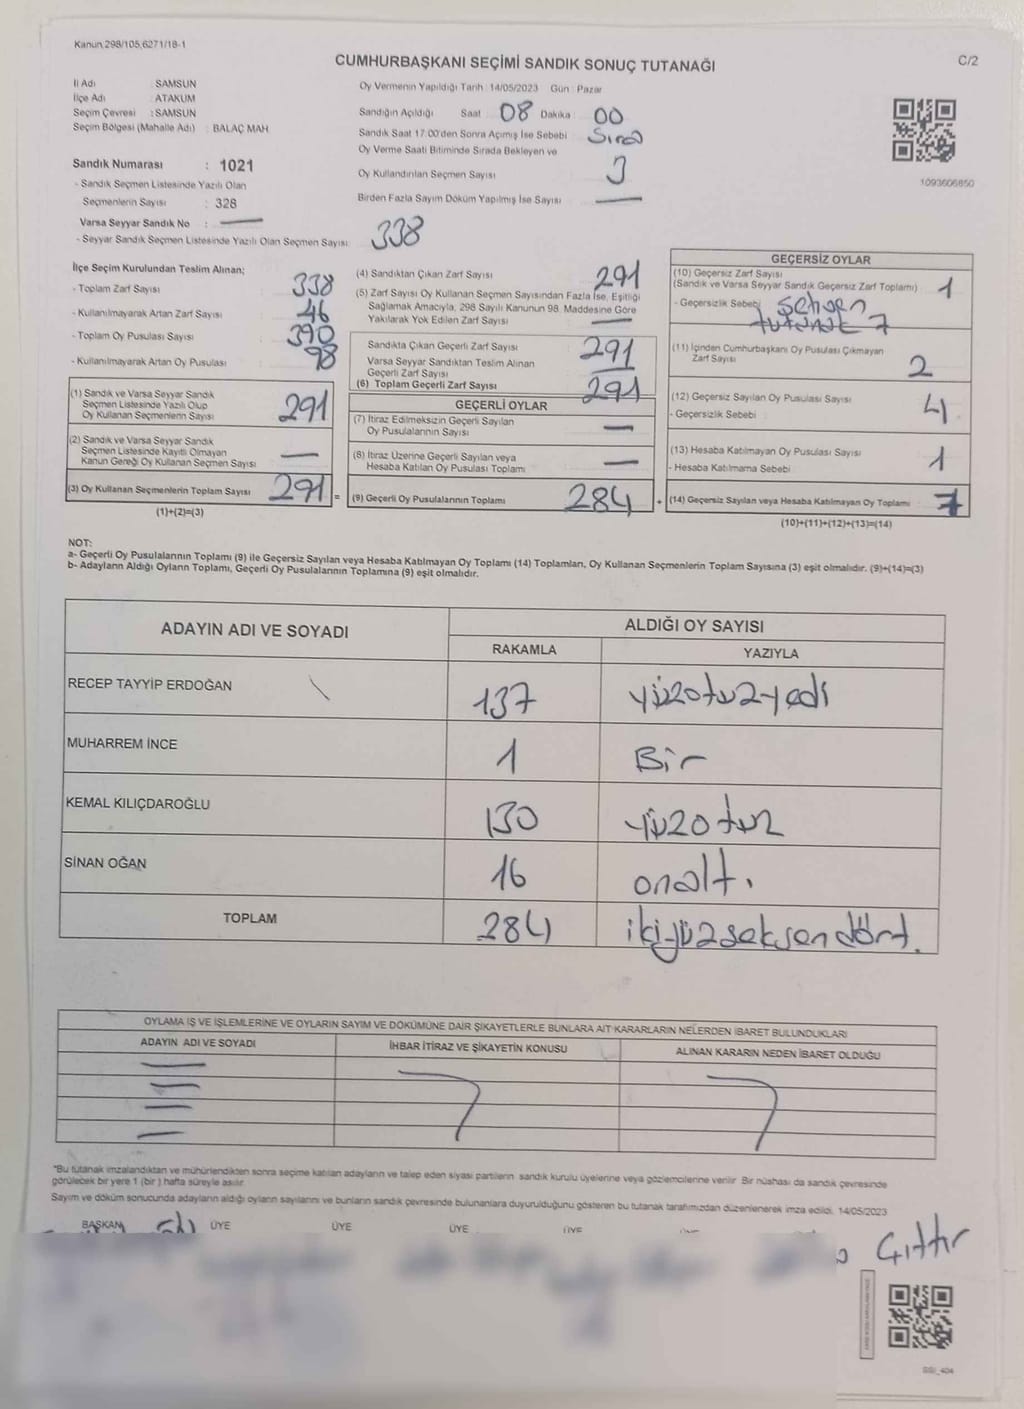 Kanun,298/105,6271/18-1
CUMHURBAŞKANI SEÇİMİ SANDIK SONUÇ TUTANAĞI
C/2
İl Adı : SAMSUN
İlçe Adı : ATAKUM
Seçim Çevresi : SAMSUN
Seçim Bölgesi (Mahalle Adı) : BALAÇ MAH
Sandık Numarası : 1021
- Sandık Seçmen Listesinde Yazılı Olan
Seçmenlerin Sayısı : 328
Varsa Seyyar Sandık No :
- Seyyar Sandık Seçmen Listesinde Yazılı Olan Seçmen Sayısı: 338
Oy Vermenin Yapıldığı Tarih :14/05/2023 Gün : Pazar
Sandığın Açıldığı Saat : 08 Dakika : 00
Sandık Saat 17.00'den Sonra Açımış İse Sebebi Sıra
Oy Verme Saati Bitiminde Sırada Bekleyen ve
Oy Kullandırılan Seçmen Sayısı 3
Birden Fazla Sayım Döküm Yapılmış İse Sayısı
1093606850
İlçe Seçim Kurulundan Teslim Alınan;
- Toplam Zarf Sayısı 338
- Kullanılmayarak Artan Zarf Sayısı 46
- Toplam Oy Pusulası Sayısı 390
- Kullanılmayarak Artan Oy Pusulası 98
(1) Sandık ve Varsa Seyyar Sandık
Seçmen Listesinde Yazılı Olup
Oy Kullanan Seçmenlerin Sayısı 291
(2) Sandık ve Varsa Seyyar Sandık
Seçmen Listesinde Kayıtlı Olmayan
Kanun Gereği Oy Kullanan Seçmen Sayısı —
(3) Oy Kullanan Seçmenlerin Toplam Sayısı 291 =
(1)+(2)=(3)
(4) Sandıktan Çıkan Zarf Sayısı 291
(5) Zarf Sayısı Oy Kullanan Seçmen Sayısından Fazla İse, Eşitliği
Sağlamak Amacıyla, 298 Sayılı Kanunun 98. Maddesine Göre
Yakılarak Yok Edilen Zarf Sayısı —
Sandıkta Çıkan Geçerli Zarf Sayısı 291
Varsa Seyyar Sandıktan Teslim Alınan
Geçerli Zarf Sayısı
(6) Toplam Geçerli Zarf Sayısı 291
GEÇERLİ OYLAR
(7) İtiraz Edilmeksizin Geçerli Sayılan
Oy Pusulalarının Sayısı —
(8) İtiraz Üzerine Geçerli Sayılan veya
Hesaba Katılan Oy Pusulası Toplamı —
(9) Geçerli Oy Pusulalarının Toplamı 284 +
GEÇERSİZ OYLAR
(10) Geçersiz Zarf Sayısı 1
(Sandık ve Varsa Seyyar Sandık Geçersiz Zarf Toplamı)
- Geçersizlik Sebebi
tutanak 7
(11) İçinden Cumhurbaşkanı Oy Pusulası Çıkmayan
Zarf Sayısı 2
(12) Geçersiz Sayılan Oy Pusulası Sayısı 4
- Geçersizlik Sebebi
(13) Hesaba Katılmayan Oy Pusulası Sayısı 1
- Hesaba Katılmama Sebebi
(14) Geçersiz Sayılan veya Hesaba Katılmayan Oy Toplamı 7
(10)+(11)+(12)+(13)=(14)
NOT:
a- Geçerli Oy Pusulalarının Toplamı (9) ile Geçersiz Sayılan veya Hesaba Katılmayan Oy Toplamı (14) Toplamları, Oy Kullanan Seçmenlerin Toplam Sayısına (3) eşit olmalıdır. (9)+(14)=(3)
b- Adayların Aldığı Oyların Toplamı, Geçerli Oy Pusulalarının Toplamına (9) eşit olmalıdır.
ADAYIN ADI VE SOYADI ALDIĞI OY SAYISI
RAKAMLA YAZIYLA
RECEP TAYYİP ERDOĞAN 137 yüzotuzyedi
MUHARREM İNCE 1 Bir
KEMAL KILIÇDAROĞLU 130 yüzotuz
SİNAN OĞAN 16 onaltı
TOPLAM 284 ikiyüzseksendört.
OYLAMA İŞ VE İŞLEMLERİNE VE OYLARIN SAYIM VE DÖKÜMÜNE DAİR ŞİKAYETLERLE BUNLARA AİT KARARLARIN NELERDEN İBARET BULUNDUKLARI
ADAYIN ADI VE SOYADI İHBAR İTİRAZ VE ŞİKAYETİN KONUSU ALINAN KARARIN NEDEN İBARET OLDUĞU
*Bu tutanak imzalandıktan ve mühürlendikten sonra seçime katılan adayların ve talep eden siyasi partilerin sandık kurulu üyelerine veya gözlemcilerine verilir. Bir nüshası da sandık çevresinde
görülecek bir yere 1 (bir) hafta süreyle asılır.
Sayım ve döküm sonucunda adayların aldığı oyların sayılarını ve bunların sandık çevresinde bulunanlara duyurulduğunu gösteren bu tutanak tarafımızdan düzenlenerek imza edildi. 14/05/2023
BAŞKAN ÜYE ÜYE ÜYE ÜYE
GSI_404